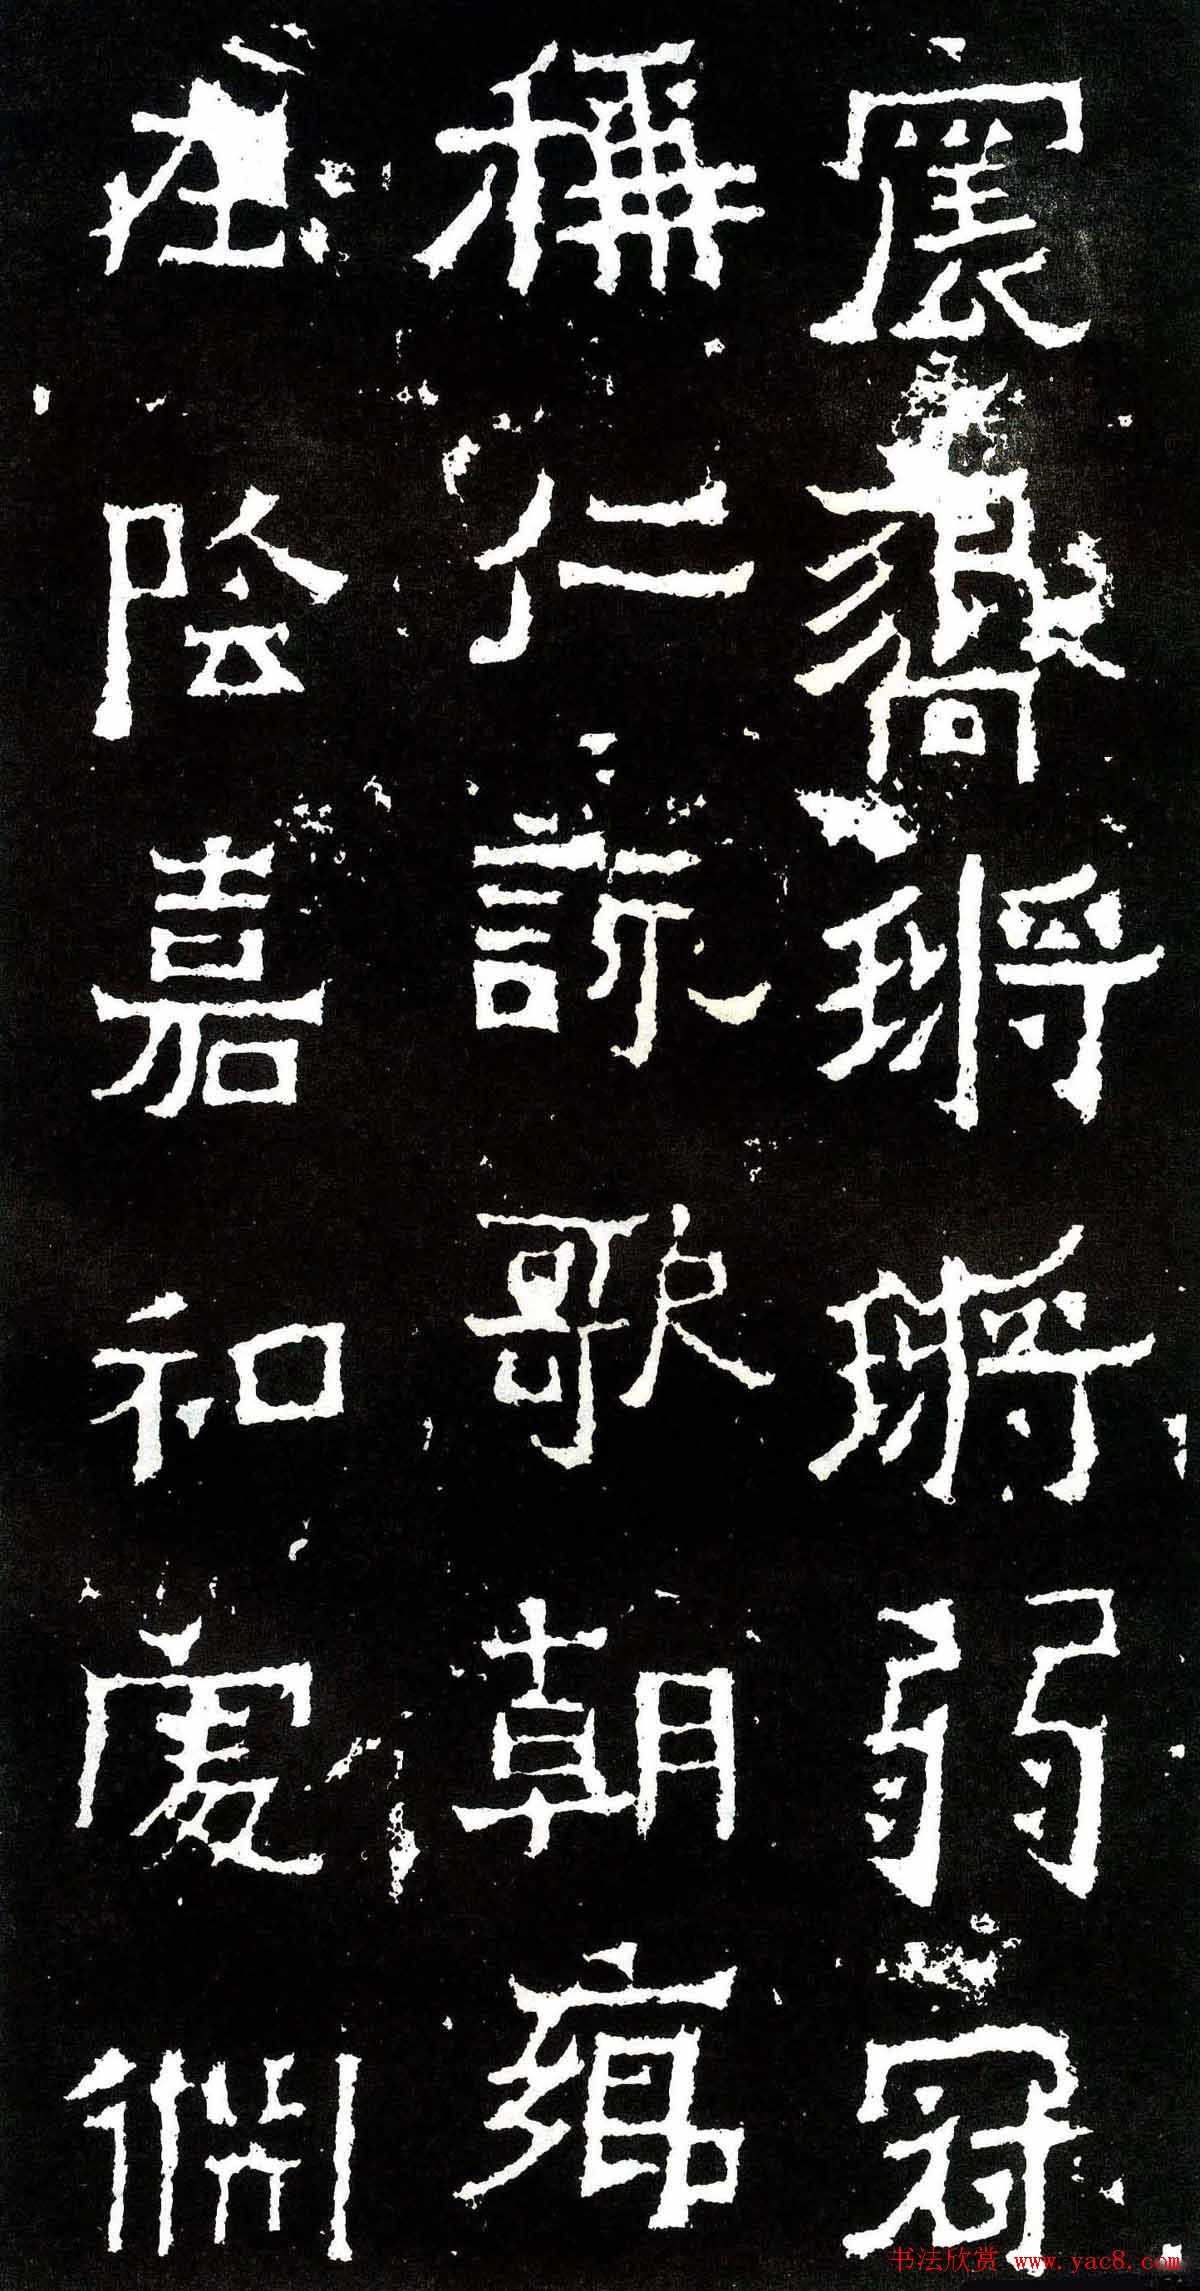 宸響鏘鏘弱冠
稱仁詠歌朝鄉
在陰嘉和處淵
书法欣赏 www.yac8.com